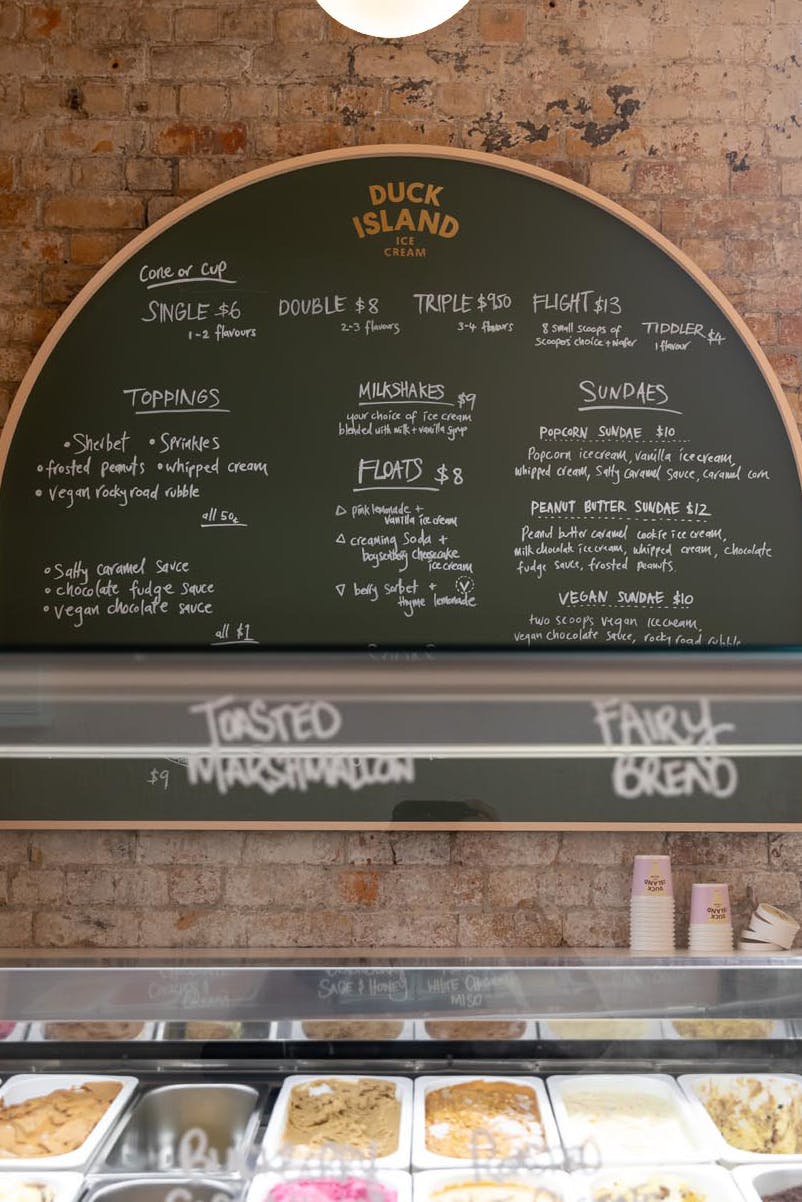 DUCK
ISLAND
ICE
CREAM
Cone or Cup
SINGLE $6
1-2 flavours
DOUBLE $8
2-3 flavours
TRIPLE $9.50
3-4 flavours
FLIGHT $13
8 small scoops of
scoopers' choice + wafer
TIDDLER $4
1 flavour
TOPPINGS
• Sherbet • Sprinkles
• frosted peanuts • whipped cream
• vegan rocky road rubble
all 50c
• Salty caramel sauce
• chocolate fudge sauce
• vegan chocolate sauce
all $1
MILKSHAKES $9
your choice of ice cream
blended with milk + vanilla syrup
FLOATS $8
pink lemonade +
vanilla ice cream
creaming soda +
boysenberry cheesecake
ice cream
berry sorbet + V
thyme lemonade
SUNDAES
POPCORN SUNDAE $10
Popcorn ice cream, vanilla ice cream,
whipped cream, salty caramel sauce, caramel corn
PEANUT BUTTER SUNDAE $12
Peanut butter caramel cookie ice cream,
milk chocolate ice cream, whipped cream, chocolate
fudge sauce, frosted peanuts.
VEGAN SUNDAE $10
two scoops vegan ice cream,
vegan chocolate sauce, rocky road rubble
TOASTED
MARSHMALLOW
FAIRY
BREAD
$9
DUCK
ISLAND
DUCK
ISLAND
COOKIES &
CREAM
SAGE & HONEY
WHITE
MISO